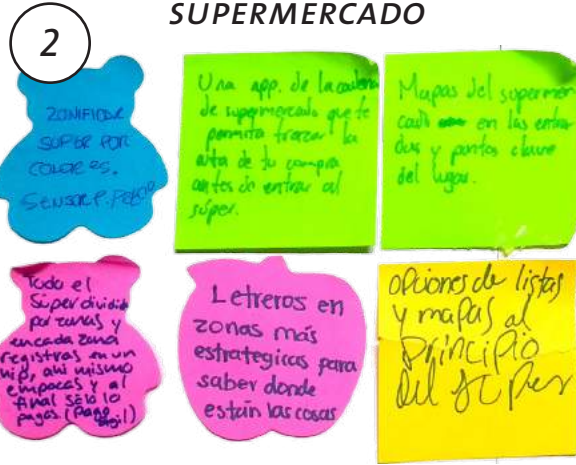 SUPERMERCADO
2
ZONIFICAR
SUPER POR
COLORES.
SENSOR P.
Una app. de la cadena
de supermercado que te
permita trazar la
ruta de tu compra
antes de entrar al
súper.
Mapas del supermer
cado en las entra
das y puntos clave
del lugar.
Todo el
Súper dividido
por zonas y
en cada zona
registras en un
ahi mismo
empacas y al
final sólo lo
pagas. (Pago
ágil)
Letreros en
zonas más
estrategicas para
saber donde
están las cosas
opciones de listas
y mapas al
principio
del super